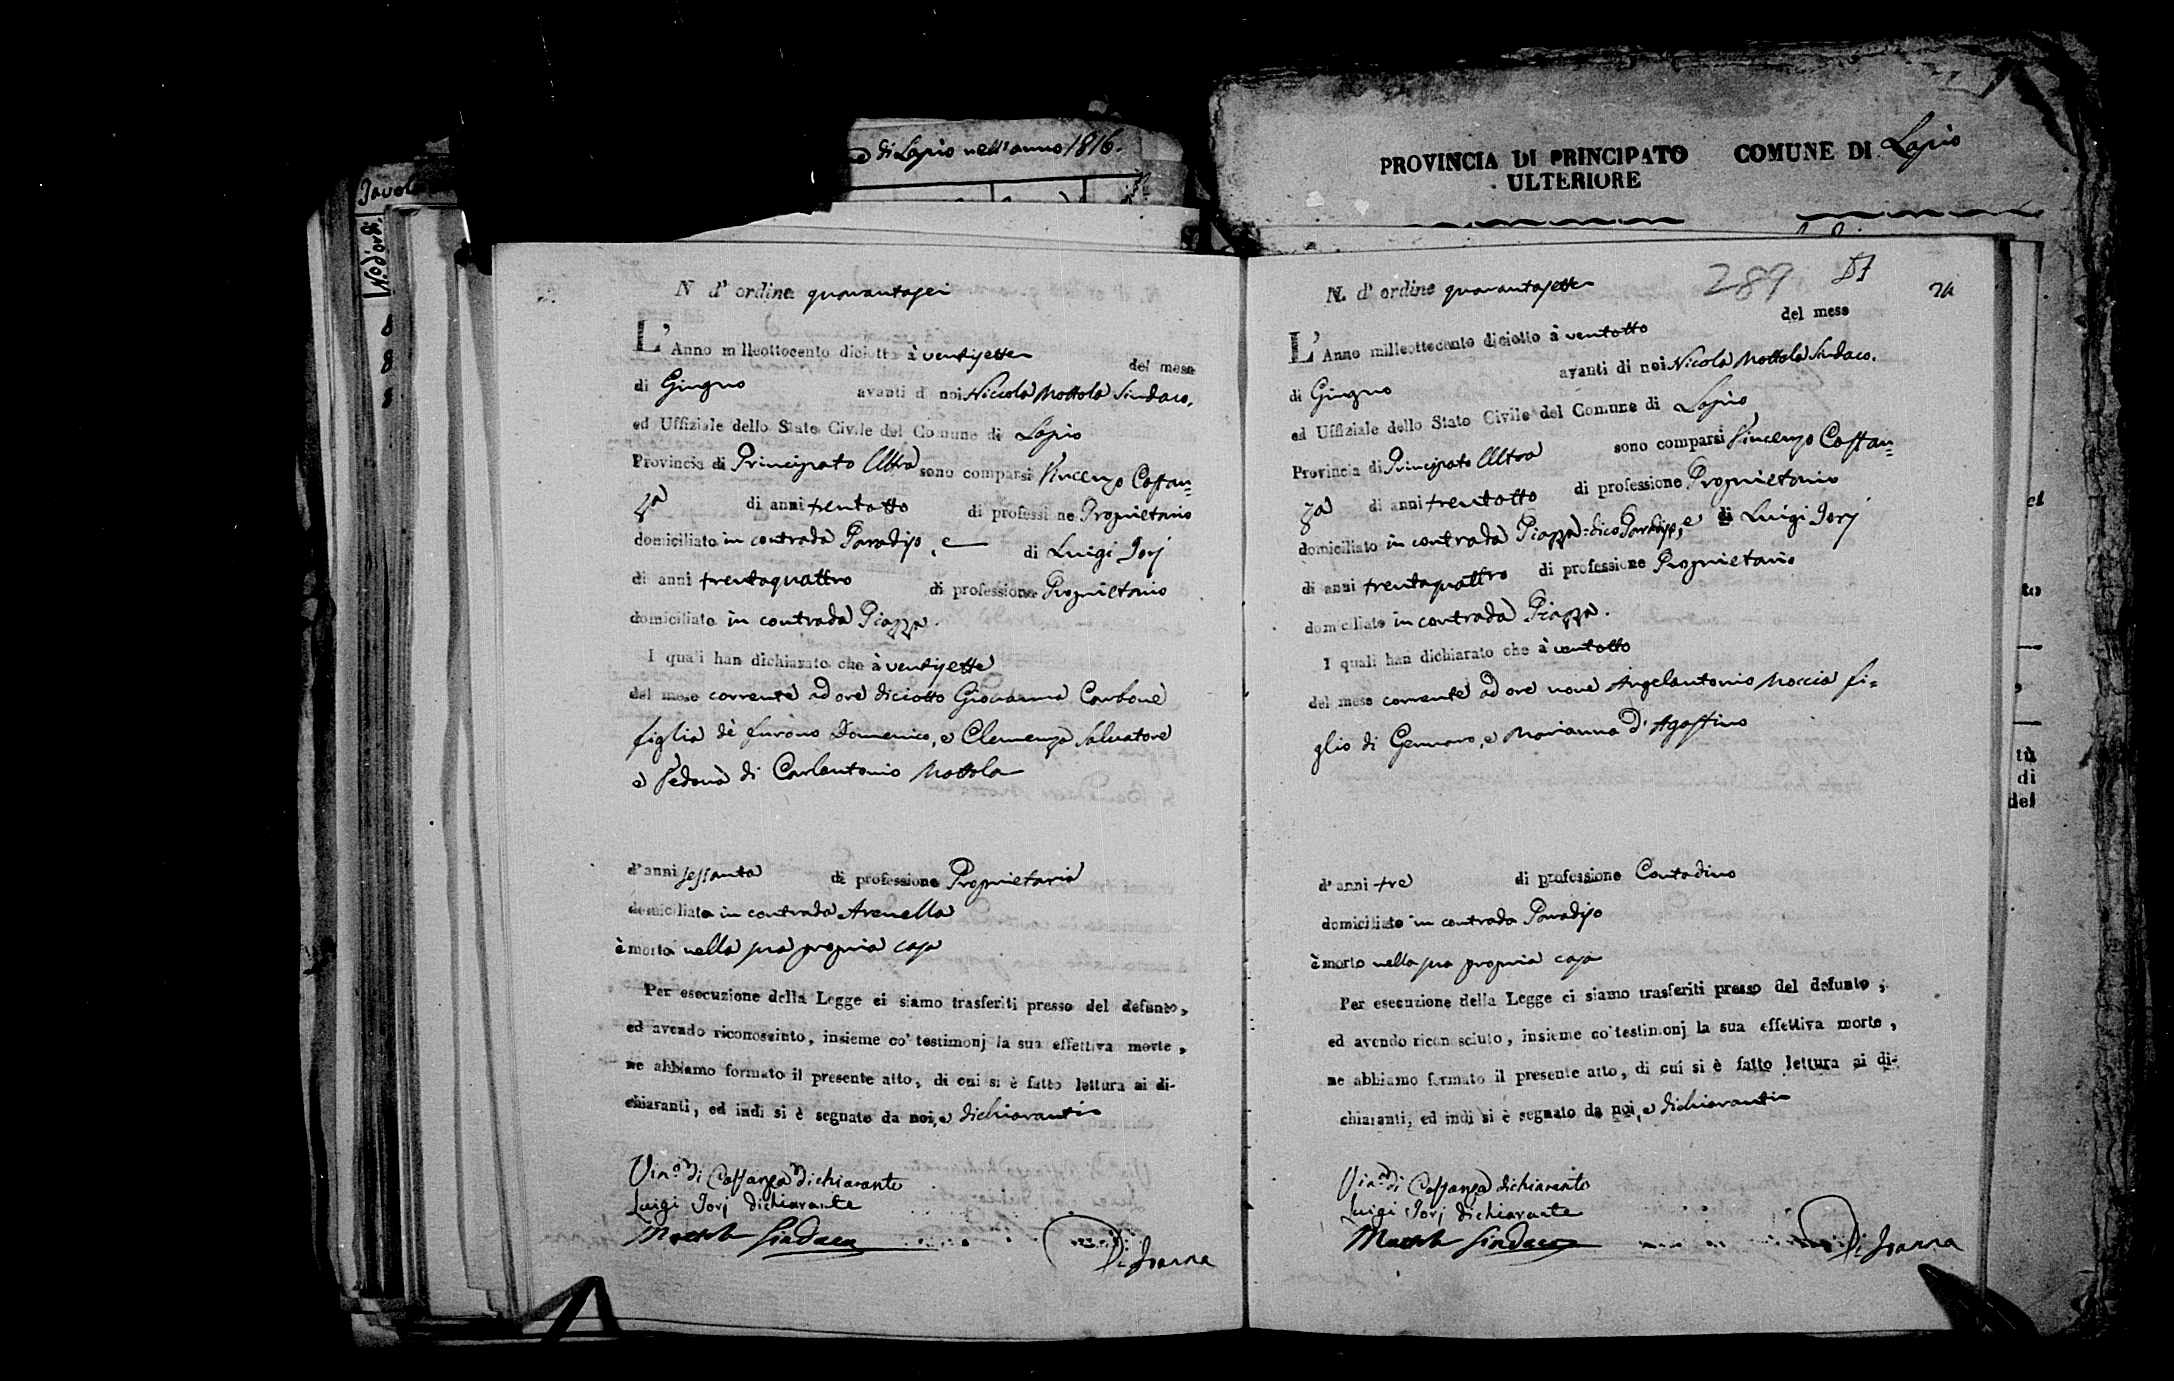 di Lapio nell'anno 1816.
PROVINCIA DI PRINCIPATO
ULTERIORE
COMUNE DI Lapio
N.d'ord.
8
8
N d' ordine quarantasei
L'Anno milleottocento diciotto à ventisette del mese
di Giugno avanti di noi Niccola Mottola Sindaco,
ed Uffiziale dello Stato Civile del Comune di Lapio
Provincia di Principato Ultra sono comparsi Vincenzo Costan=
za di anni trentotto di professione Proprietario
domiciliato in contrada Paradiso, e di Luigi Iorj
di anni trentaquattro di professione Proprietario
domiciliato in contrada Piazza.
I quali han dichiarato che à ventisette
del mese corrente ad ore diciotto Giovanna Carbone
figlia de furono Domenico, e Clemenza Salvatore
e Vedova di Carlantonio Mottola
d'anni sessanta di professione Proprietaria
domiciliata in contrada Arenella
è morta nella sua propria casa
Per esecuzione della Legge ci siamo trasferiti presso del defunto,
ed avendo riconosciuto, insieme co' testimonj la sua effettiva morte,
ne abbiamo formato il presente atto, di cui si è fatto lettura ai di-
chiaranti, ed indi si è segnato da noi, e dichiaranti
Vin.o di Costanza dichiarante
Luigi Iorj dichiarante
Mottola Sindaco
Di Ioanna
289
57
24
N. d' ordine quarantasette
L'Anno milleottocento diciotto à ventotto del mese
di Giugno avanti di noi Nicola Mottola Sindaco.
ed Uffiziale dello Stato Civile del Comune di Lapio
Provincia di Principato Ultra sono comparsi Vincenzo Costan=
za di anni trentotto di professione Proprietario
domiciliato in contrada Piazza=dico Paradiso, e di Luigi Iorj
di anni trentaquattro di professione Proprietario
domiciliato in contrada Piazza.
I quali han dichiarato che à ventotto
del mese corrente ad ore nove Angelantonio Moccia fi=
glio di Gennaro, e Marianna d'Agostino
d'anni tre di professione Contadino
domiciliato in contrada Paradiso
è morto nella sua propria casa
Per esecuzione della Legge ci siamo trasferiti presso del defunto,
ed avendo riconosciuto, insieme co'testimonj la sua effettiva morte,
ne abbiamo formato il presente atto, di cui si è fatto lettura ai di-
chiaranti, ed indi si è segnato da noi, e dichiaranti
Vin.o di Costanza dichiarante
Luigi Iorj dichiarante
Mottola Sindaco
Di Ioanna
tù
di
del